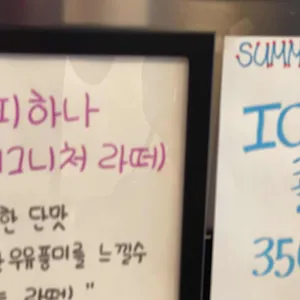 피하나
시그니처 라떼)
한 단맛
우유풍미를 느낄수
라떼) "
SUMM
IC
350